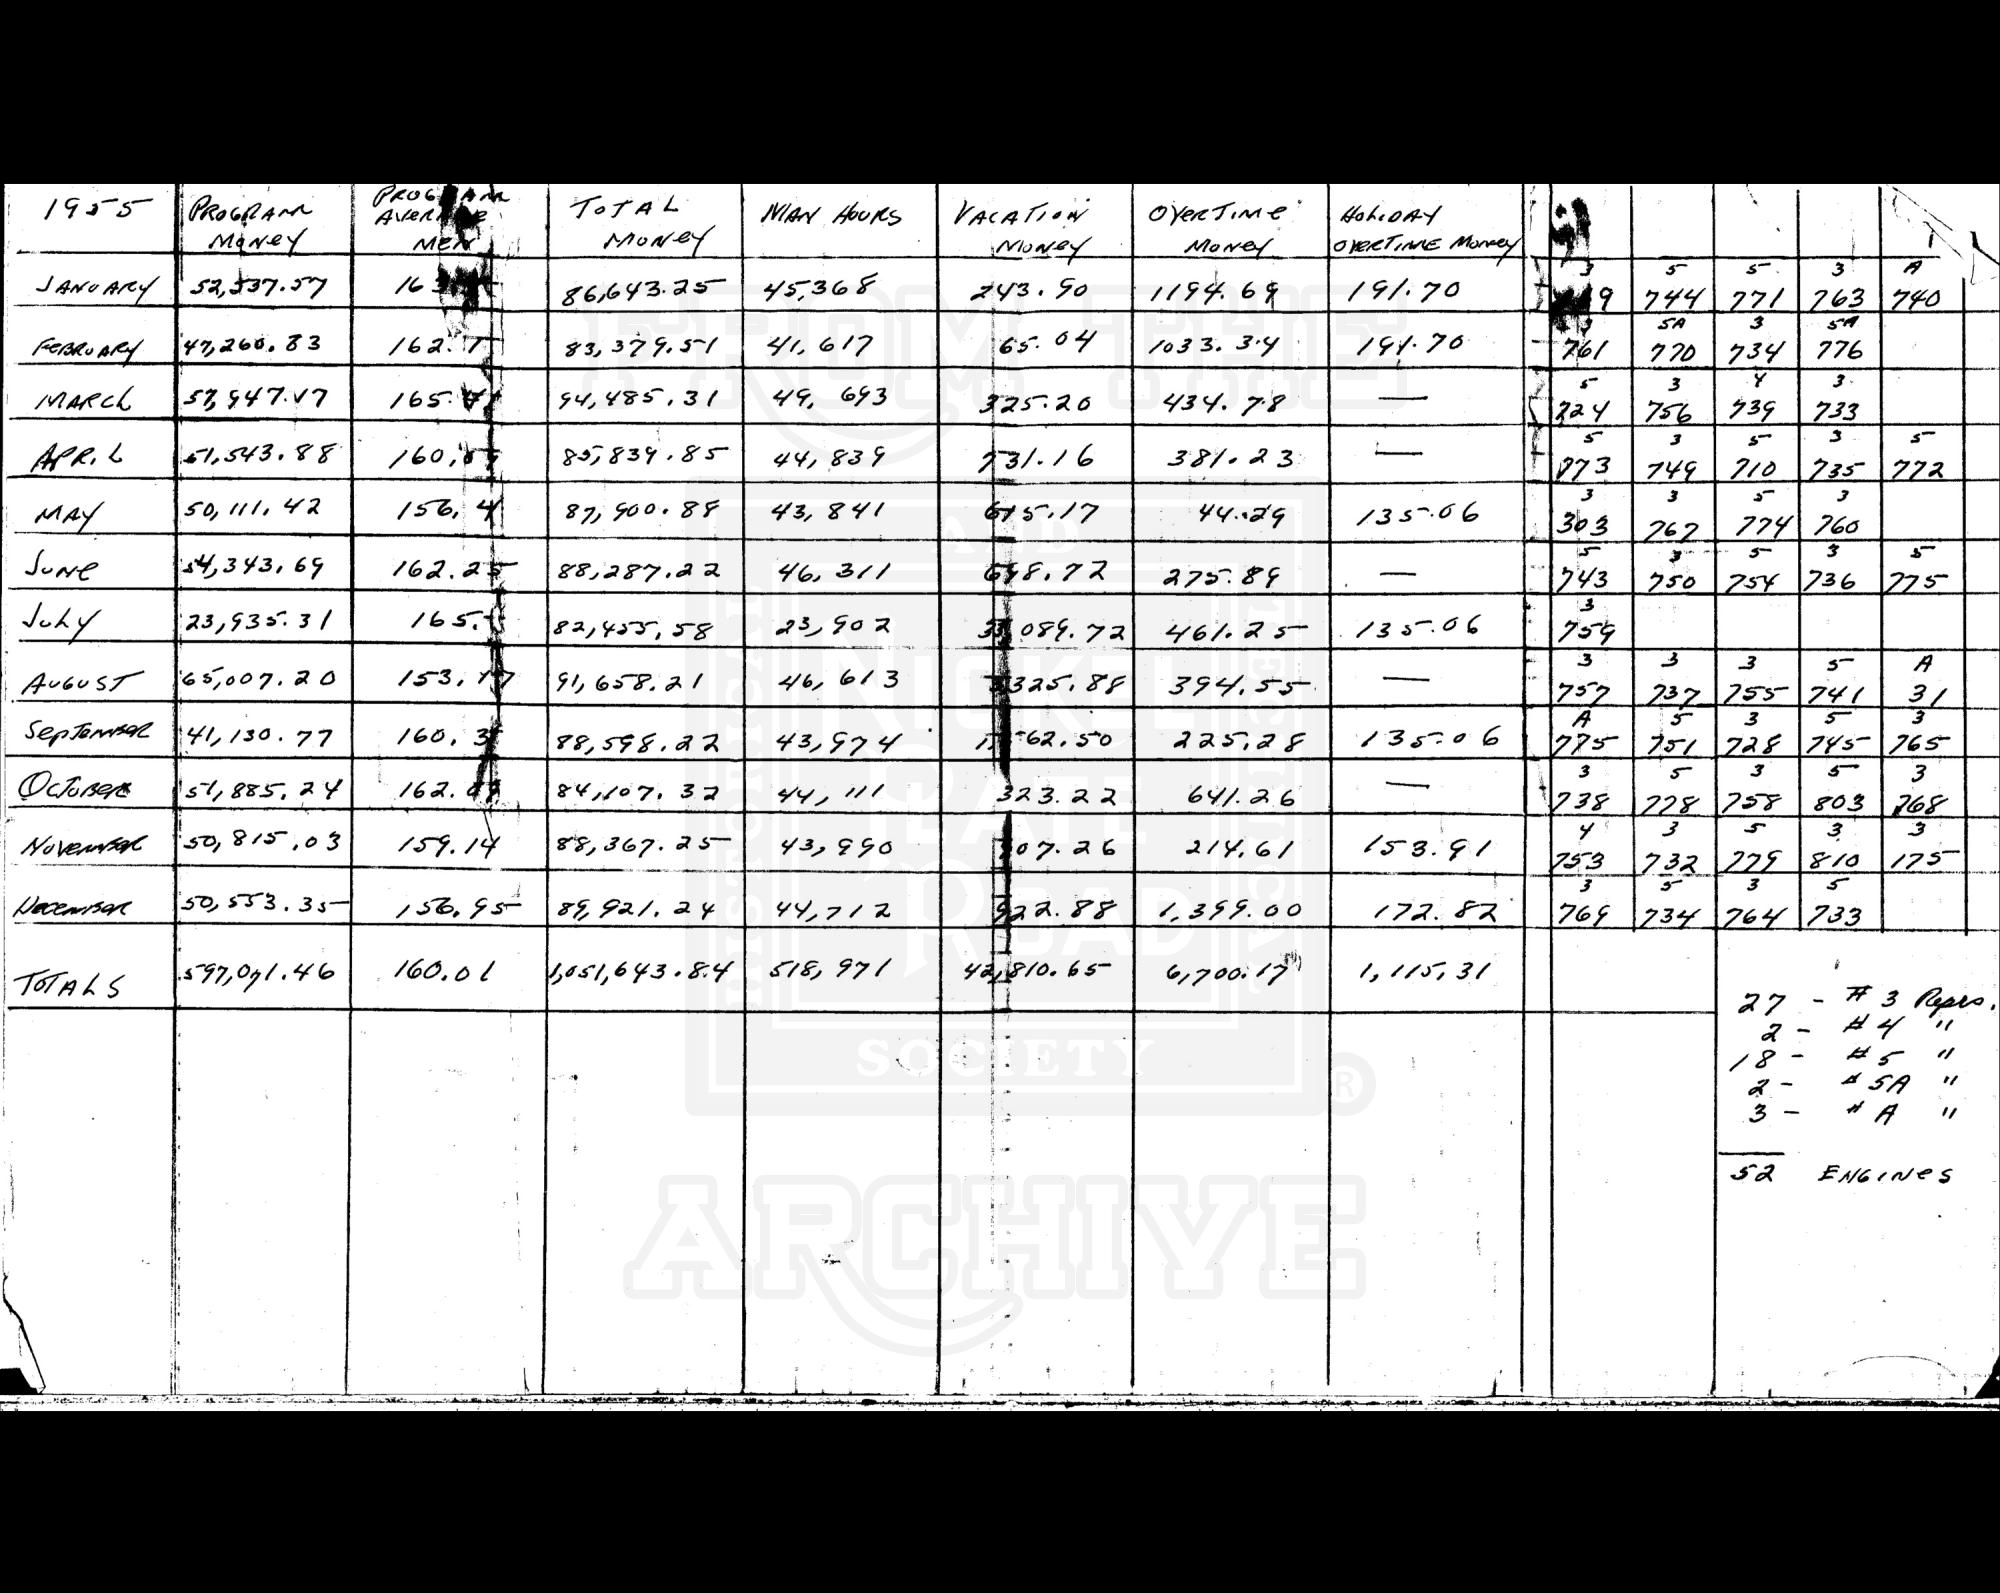 1955 PROGRAM MONEY PROGRAM AVERAGE MEN TOTAL MONEY MAN HOURS VACATION MONEY OVERTIME MONEY HOLIDAY OVERTIME MONEY
3 5 5 3 A
JANUARY 52,537.57 86,643.25 45,368 243.90 1194.69 191.70 744 771 763 740
3 5A 3 5A
FEBRUARY 47,260.83 83,379.51 41,617 65.04 1033.34 191.70 761 770 734 776
5 3 4 3
MARCH 57,947.17 94,485.31 49,693 325.20 434.78 — 724 756 739 733
5 3 5 3 5
APRIL 51,543.88 85,839.85 44,839 731.16 381.23 — 773 749 710 735 772
3 3 5 3
MAY 50,111.42 156.4 87,900.88 43,841 615.17 44.29 135.06 303 767 774 760
5 3 5 3 5
JUNE 54,343.69 162.25 88,287.22 46,311 698.72 275.89 — 743 750 754 736 775
3
JULY 23,935.31 82,455.58 23,902 461.25 135.06 759
3 3 3 5 A
AUGUST 65,007.20 91,658.21 46,613 394.55 — 757 737 755 741 31
A 5 3 5 3
SEPTEMBER 41,130.77 88,598.22 43,974 225.28 135.06 775 751 728 745 765
3 5 3 5 3
OCTOBER 51,885.24 84,107.32 44,111 323.22 641.26 — 738 778 758 803 768
4 3 5 3 3
NOVEMBER 50,815.03 159.14 88,367.25 43,990 214.61 153.91 753 732 779 810 175
3 5 3 5
DECEMBER 50,553.35 156.95 89,921.24 44,712 922.88 1,399.00 172.82 769 734 764 733
TOTALS 597,071.46 160.01 1,051,643.84 518,971 42,810.65 6,700.17 1,115.31
27 - # 3 Reprs.
2 - # 4 "
18 - # 5 "
2 - # 5A "
3 - # A "
52 ENGINES
FROM THE
AND
HISTORICAL
NICKEL
PLATE
ROAD
TECHNICAL
SOCIETY
®
ARCHIVE